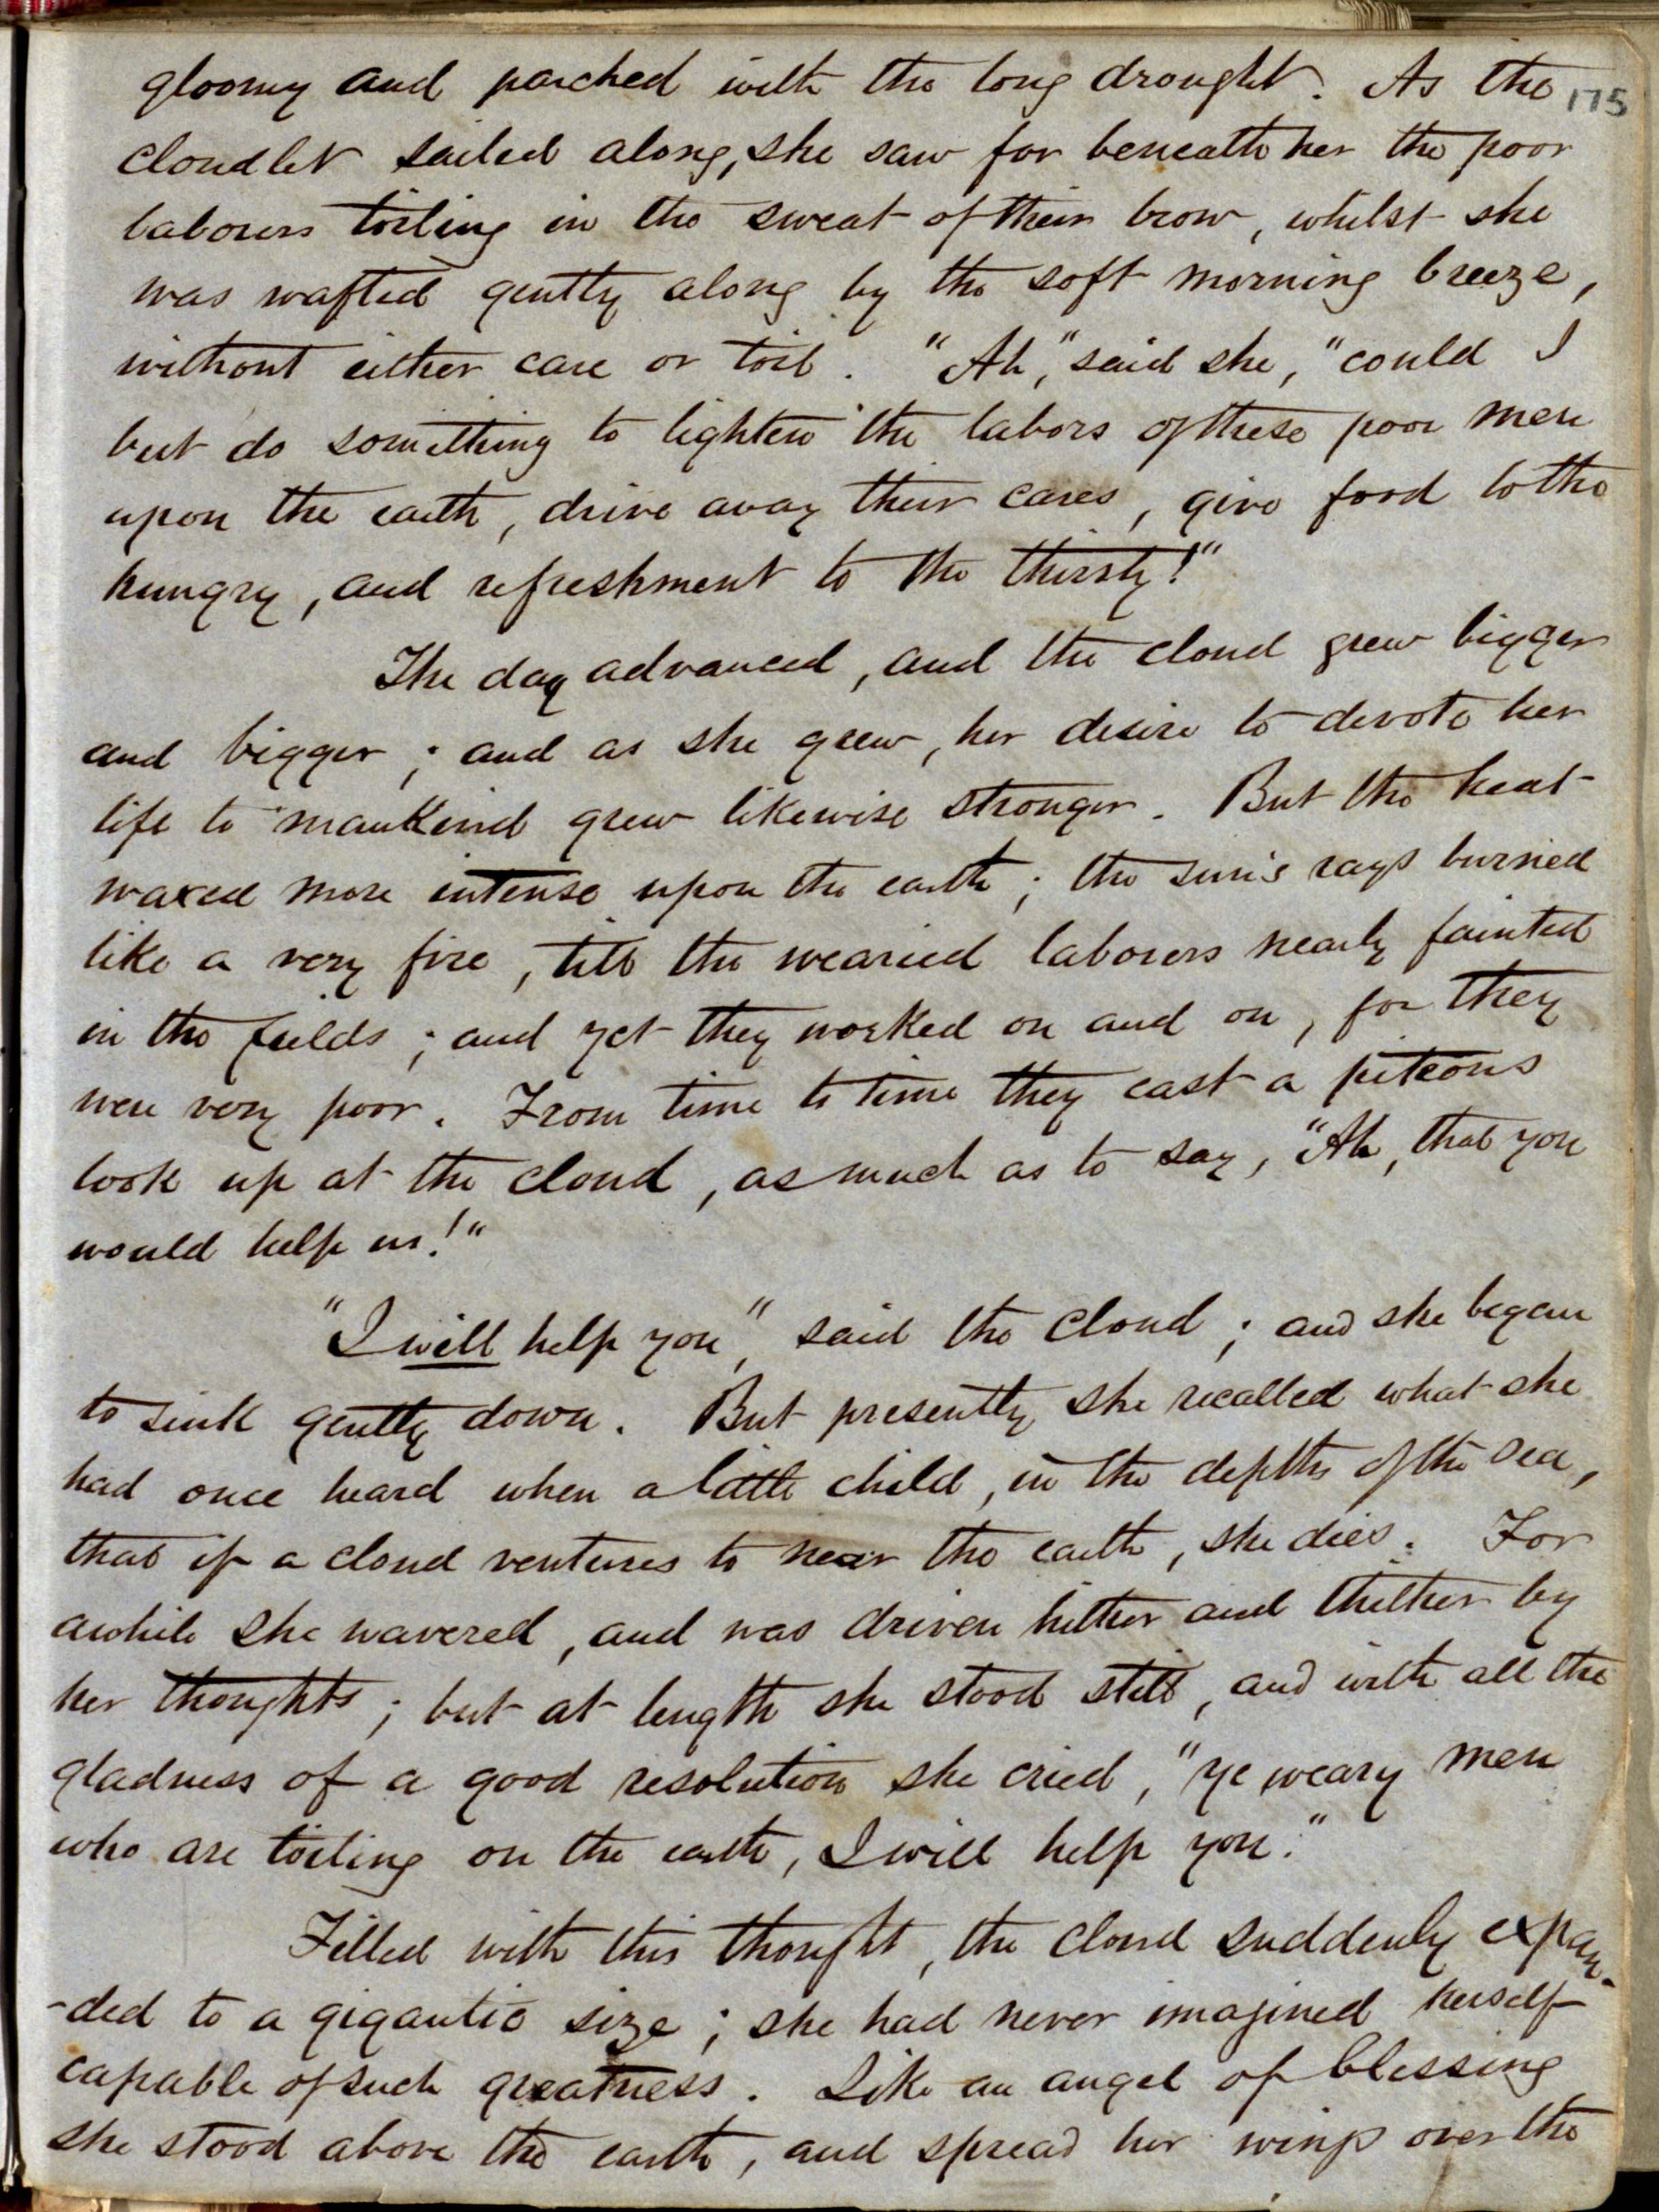 gloomy and parched with the long drought. As the 175
cloudlet sailed along, she saw far beneath her the poor
laborers toiling in the sweat of their brow, whilst she
was wafted gently along by the soft morning breeze,
without either care or toil. "Ah," said she, "could I
but do something to lighten the labors of these poor men
upon the earth, drive away their cares, give food to the
hungry, and refreshment to the thirsty!"
The day advanced, and the cloud grew bigger
and bigger; and as she grew, her desire to devote her
life to mankind grew likewise stronger. But the heat
waxed more intense upon the earth; the sun's rays burned
like a very fire, till the wearied laborers nearly fainted
in the fields; and yet they worked on and on, for they
were very poor. From time to time they cast a piteous
look up at the cloud, as much as to say, "Ah, that you
would help us!"
"I will help you", said the cloud; and she began
to sink gently down. But presently she recalled what she
had once heard when a little child, in the depths of the sea,
that if a cloud ventures to near the earth, she dies. For
awhile she wavered, and was driven hither and thither by
her thoughts; but at length she stood still, and with all the
gladness of a good resolution she cried, "ye weary men
who are toiling on the earth, I will help you."
Filled with this thought, the cloud suddenly expan-
-ded to a gigantic size; she had never imagined herself
capable of such greatness. Like an angel of blessing
she stood above the earth, and spread her wings over the